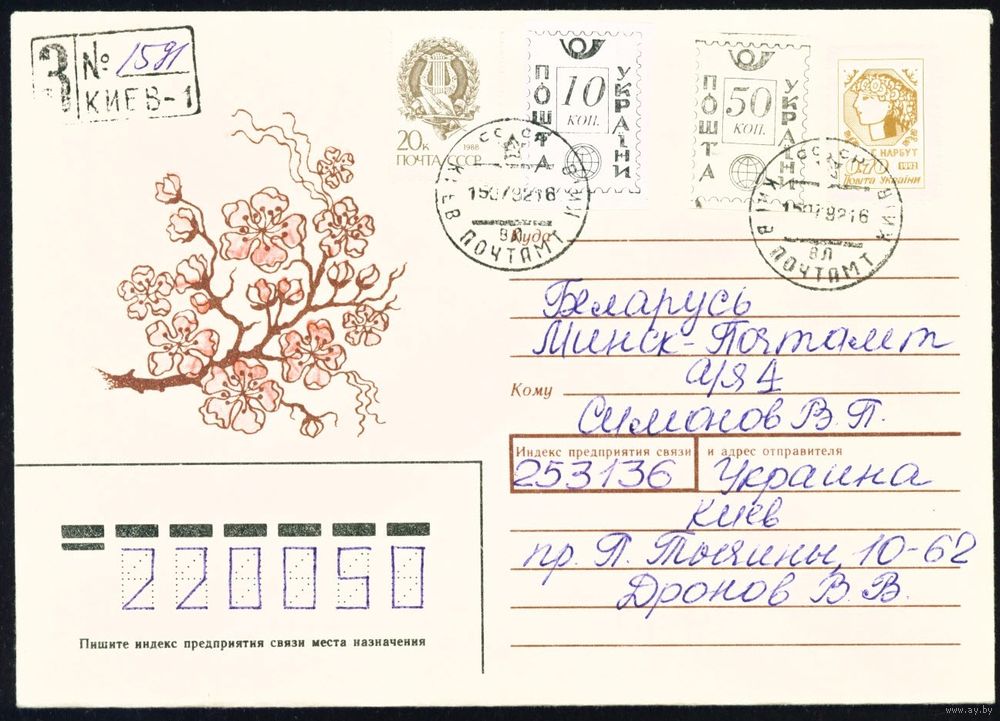 З № 1591
КИЕВ-1
20к
1988
ПОЧТА СССР
ПОШТА
10
КОП.
УКРАЇНИ
ПОШТА
50
КОП.
УКРАЇНИ
Г. НАРБУТ
0,70 1992
Пошта України
СССР
15079216
ВЛ
КИЇВ ПОЧТАМТ КИЕВ
СССР
15079216
ВЛ
КИЇВ ПОЧТАМТ КИЕВ
Куда
Беларусь
Минск-Почтамт
а/я 1
Кому
Симонов В.П.
Индекс предприятия связи и адрес отправителя
253136 Украина
Киев
пр. П. Тычины, 10-62
Дронов В.В.
220050
Пишите индекс предприятия связи места назначения
www.ay.by